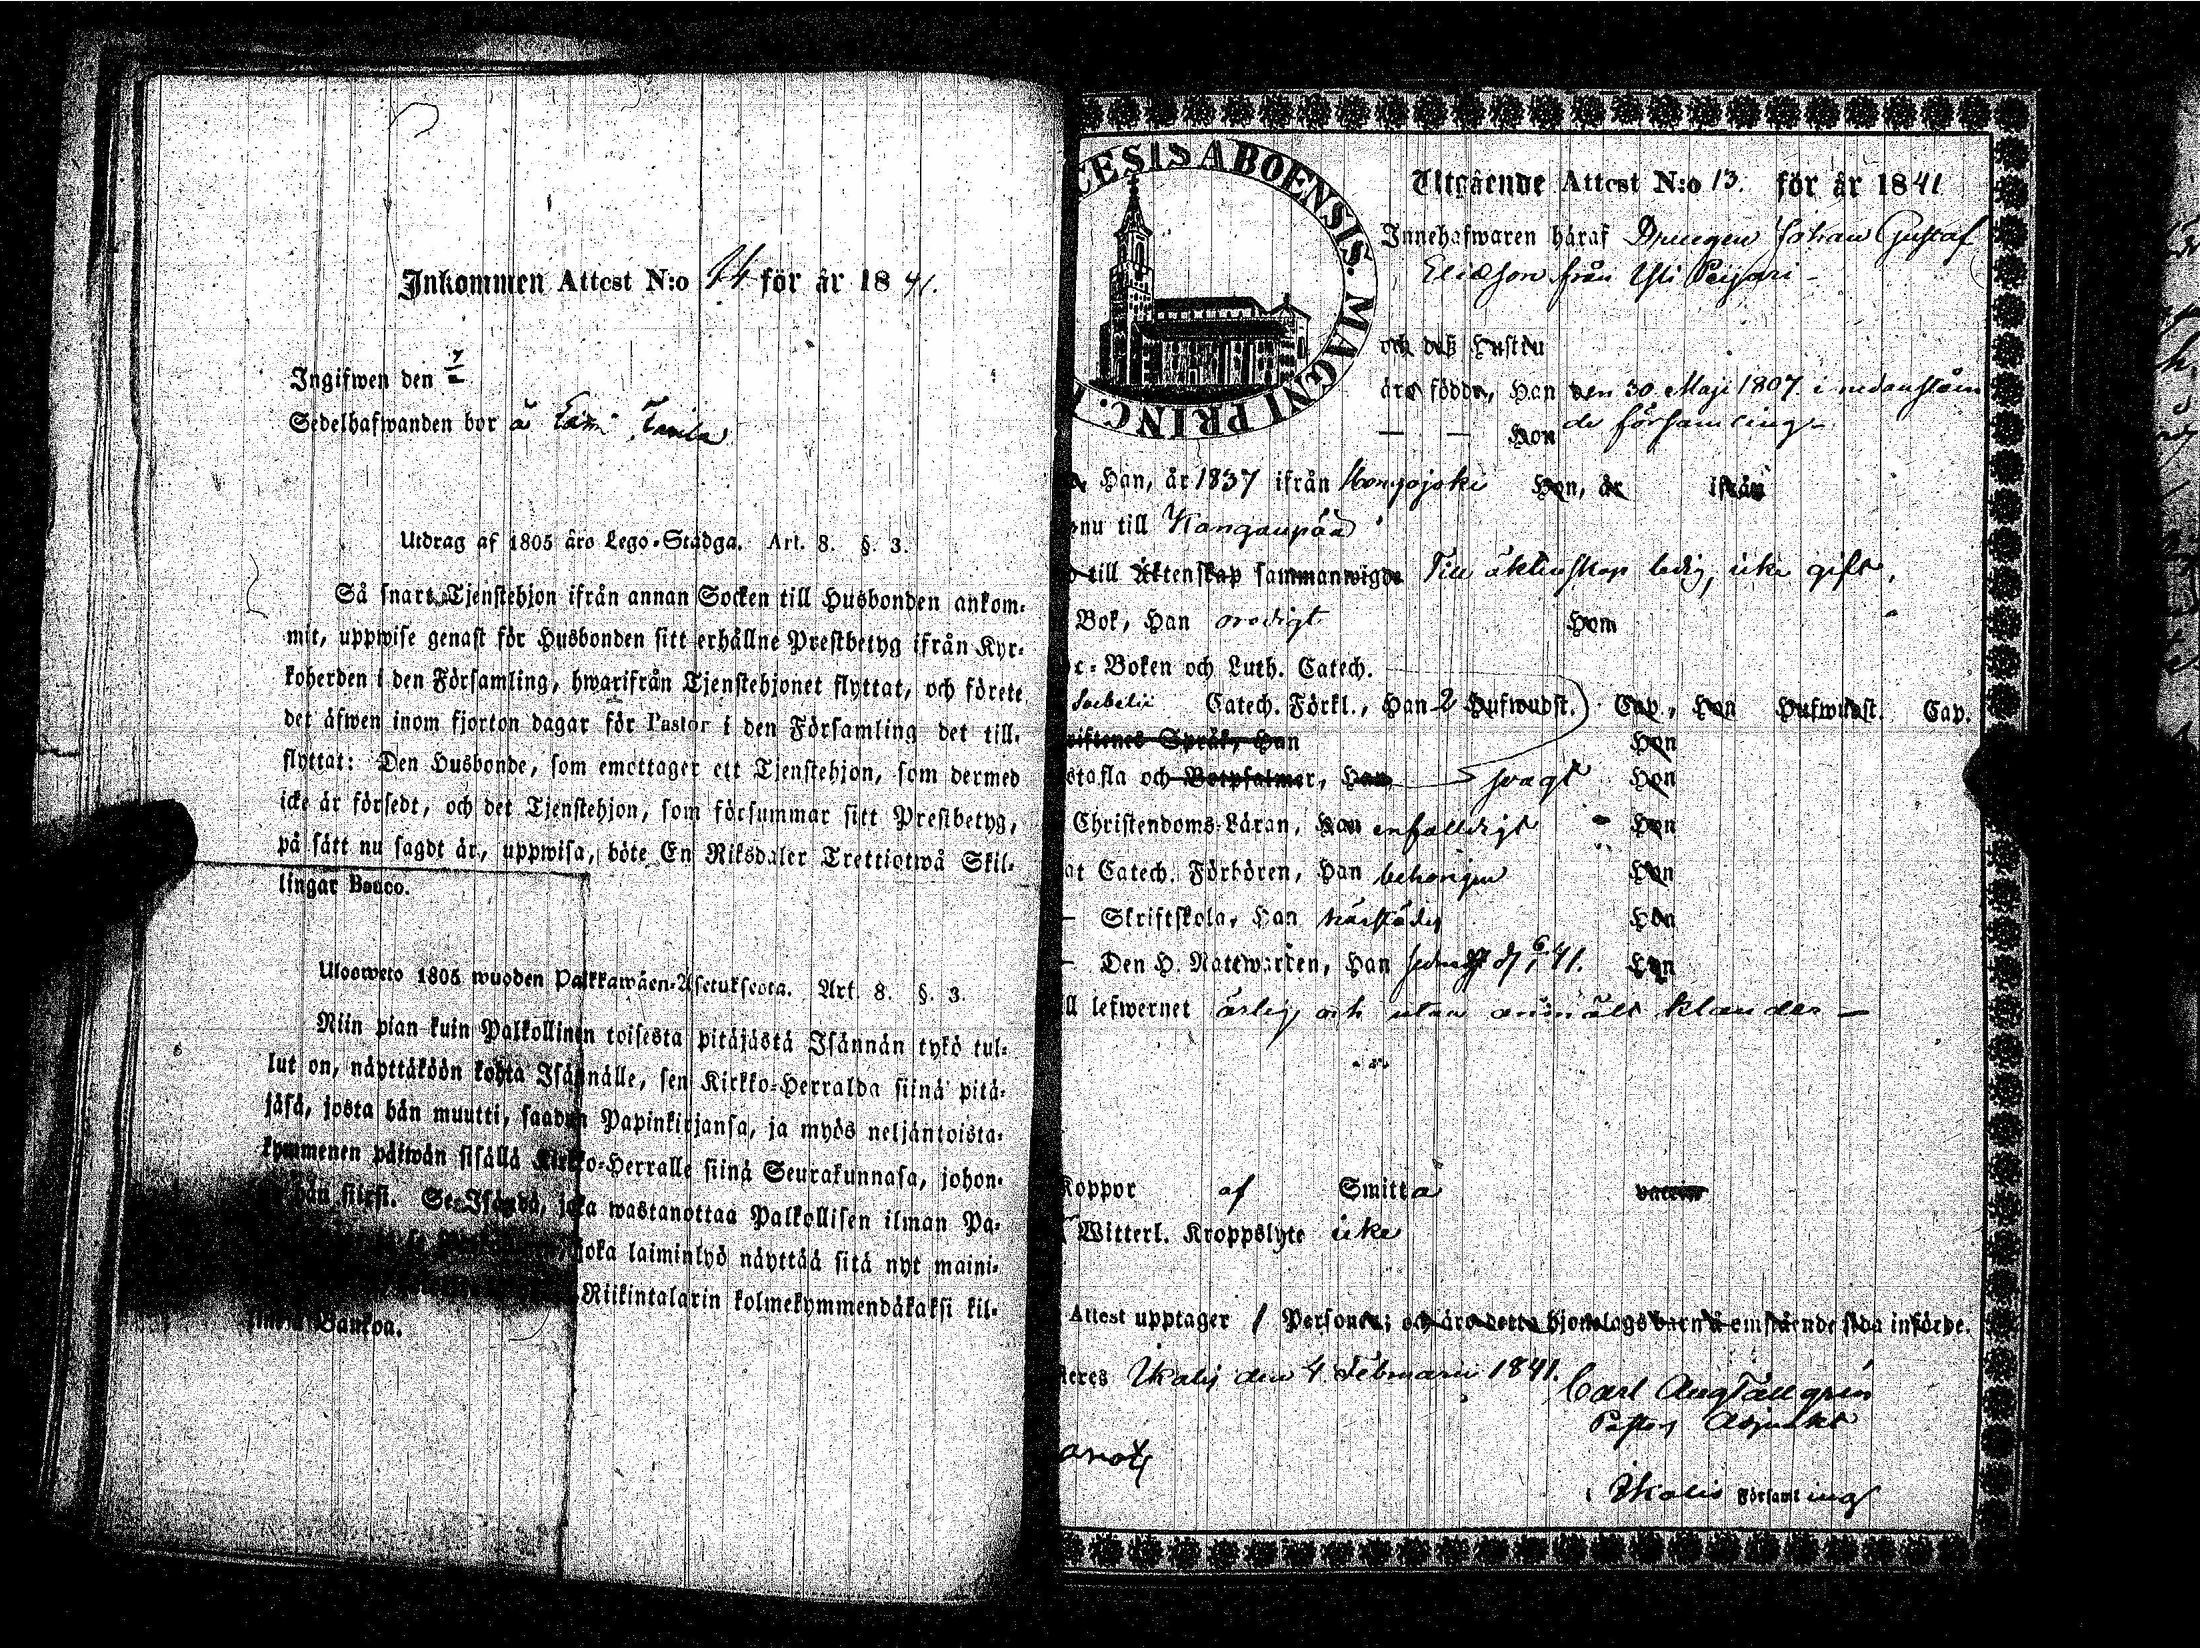 Inkommen Attest N:o 14 för år 1841.
Ingifwen den
Sedelhafwanden bor å
Utdrag af 1805 års Lego-Stadga. Art. 8. §. 3.
Så snart Tjenstehjon ifrån annan Socken till Husbonden ankom-
mit, uppwise genast för Husbonden sitt erhållne Prestbetyg ifrån Kyr-
koherden i den Församling, hwarifrån Tjenstehjonet flyttat, och förete
det äfwen inom fjorton dagar för Pastor i den Församling det till-
flyttat: Den Husbonde, som emottager ett Tjenstehjon, som dermed
icke är försedt, och det Tjenstehjon, som försummar sitt Prestbetyg,
på sätt nu sagdt är, uppwisa, böte En Riksdaler Trettiotwå Skil-
lingar Banco.
Ulosweto 1805 wuoden Palkkawäen-Asetuksesta. Art. 8. §. 3.
Niin pian kuin Palkollinen toisesta pitäjästä Isännän tykö tul-
lut on, näyttäköön kohta Isännälle, sen Kirkko-Herralda siinä pitä-
jäsä, josta hän muutti, saadun Papinkirjansa, ja myös neljäntoista-
kymmenen päiwän sisällä Kirkko-Herralle siinä Seurakunnasa, johon-
hän siirsi. Se Isändä, joka wastanottaa Palkollisen ilman Pa-
joka laiminlyö näyttää sitä nyt maini-
Riikintalarin kolmekymmendäkaksi kil-
Bankoa.
CESIS ABOENSIS. MAGNI PRINC.
Utgående Attest N:o 13. för år 1841
Innehafwaren häraf Drengen Johan Gustaf
Eliasson från Yli
och deß hustru
äro födde, Han den 30 Maji 1807 i nedanståen
Hon de församling
Han, år 1837 ifrån Hongojoki Hon, år ifrån
nu till Kangaupää
till Äktenskap sammanwigde Till äktenskap ledig, icke gift.
Bok, Han Hon
c-Boken och Luth. Catech.
Catech. Förkl., Han 2 Hufwudst. Cap., Hon Hufwudst. Cap.
riftenes Språk, Han Hon
stafla och Botpsalmer, Han svagt Hon
Christendoms-Läran, Han enfalldigt Hon
at Catech. Förhören, Han behörigen Hon
— Skriftskola, Han härstädes Hon
— Den H. Nattwarden, Han 41. Hon
ll lefwernet ärlig och utan anmält klander —
Koppor af Smitta
Witterl. Kroppslyte icke
Attest upptager 1 Personer; och äro detta hjonelags barn å omstående sida införde.
teres Ikalis den 4 Februarii 1841.
Carl Aug Tallgrén
Pastors Adjunkt
i Ikalis Församling